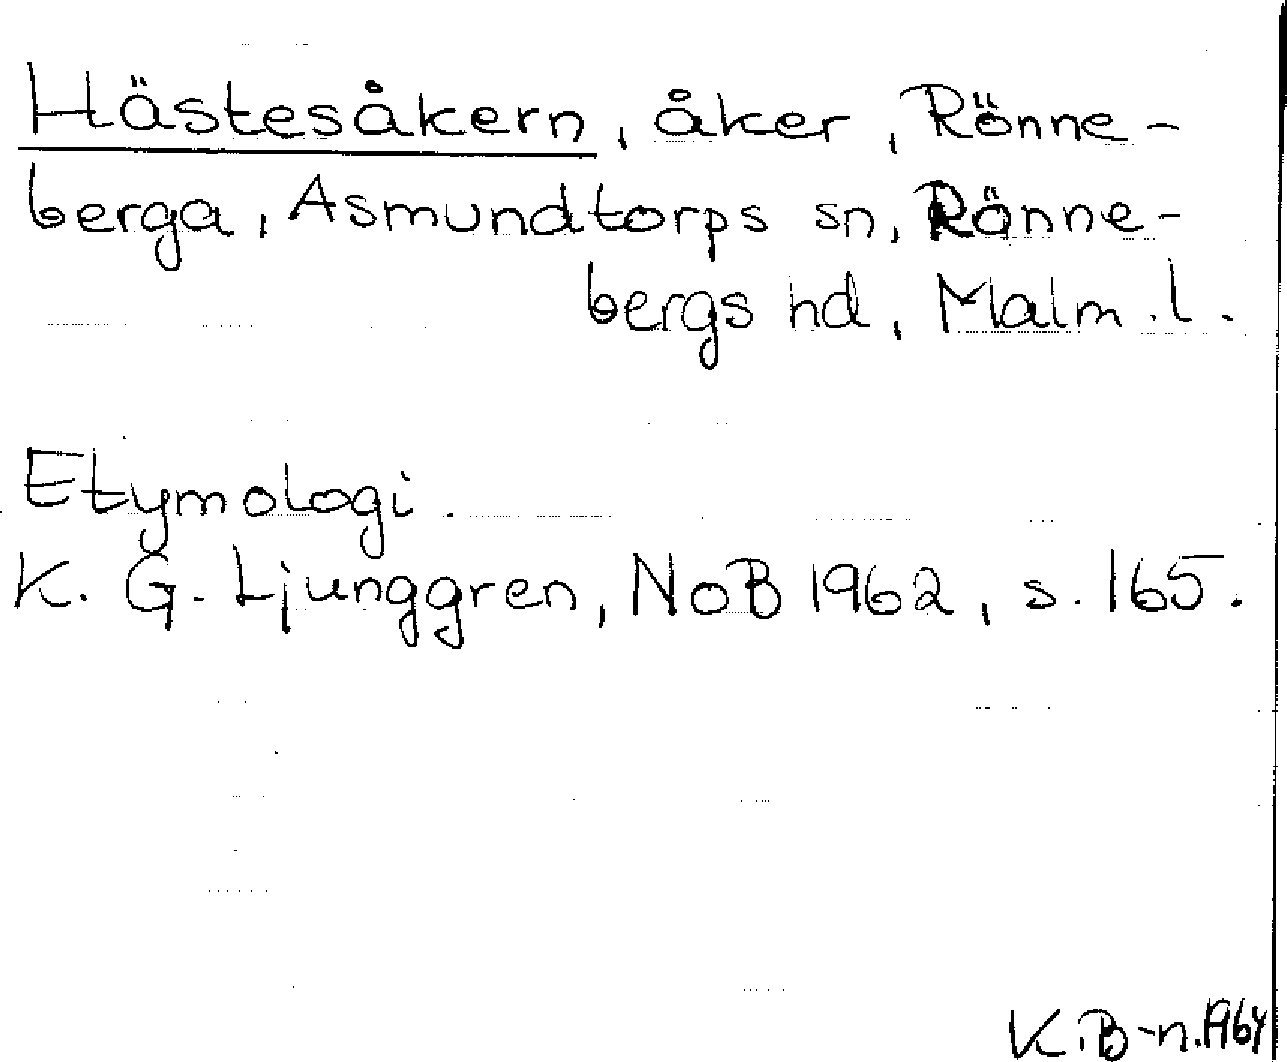 Hästesåkern, åker, Rönne-
berga, Asmundtorps sn, Rönne-
bergs hd, Malm. l.
Etymologi.
K. G. Ljunggren, NoB 1962, s. 165.
K.B-n. 1964